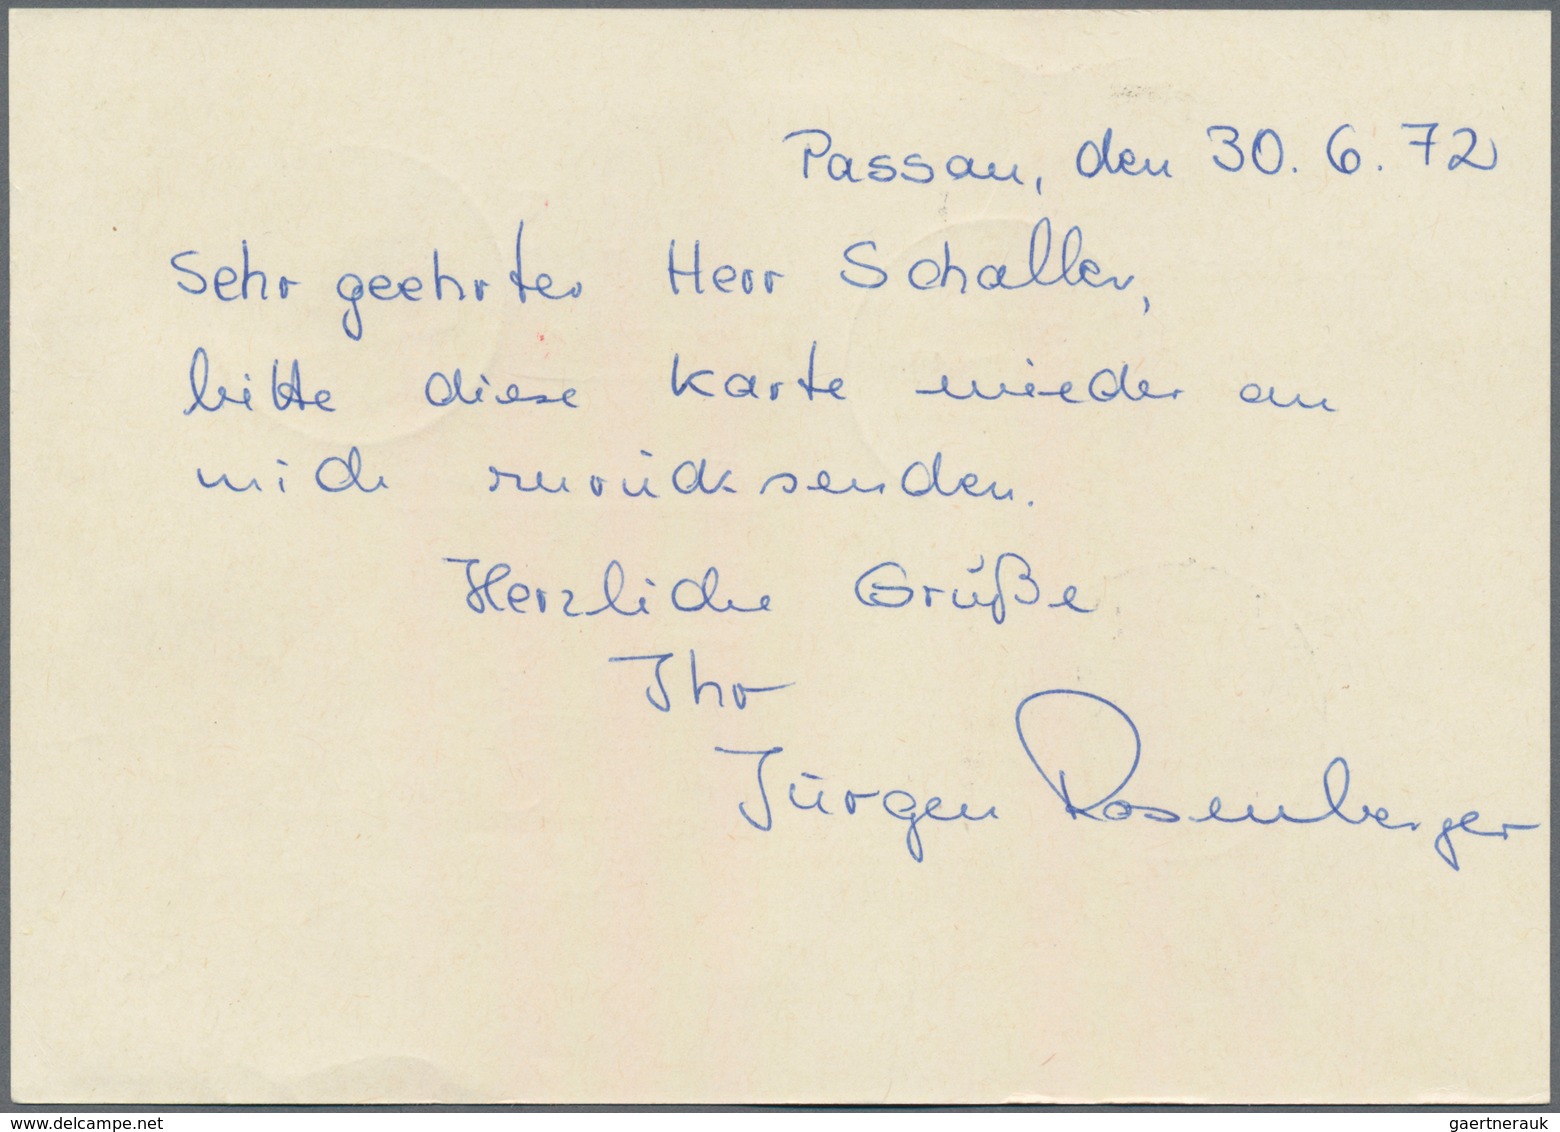 Passau, den 30. 6. 72
Sehr geehrter Herr Schaller,
bitte diese Karte wieder an
mich zurücksenden.
Herzliche Grüße
Ihr
Jürgen Rosenberger
delcampe.net
gaertnerauk